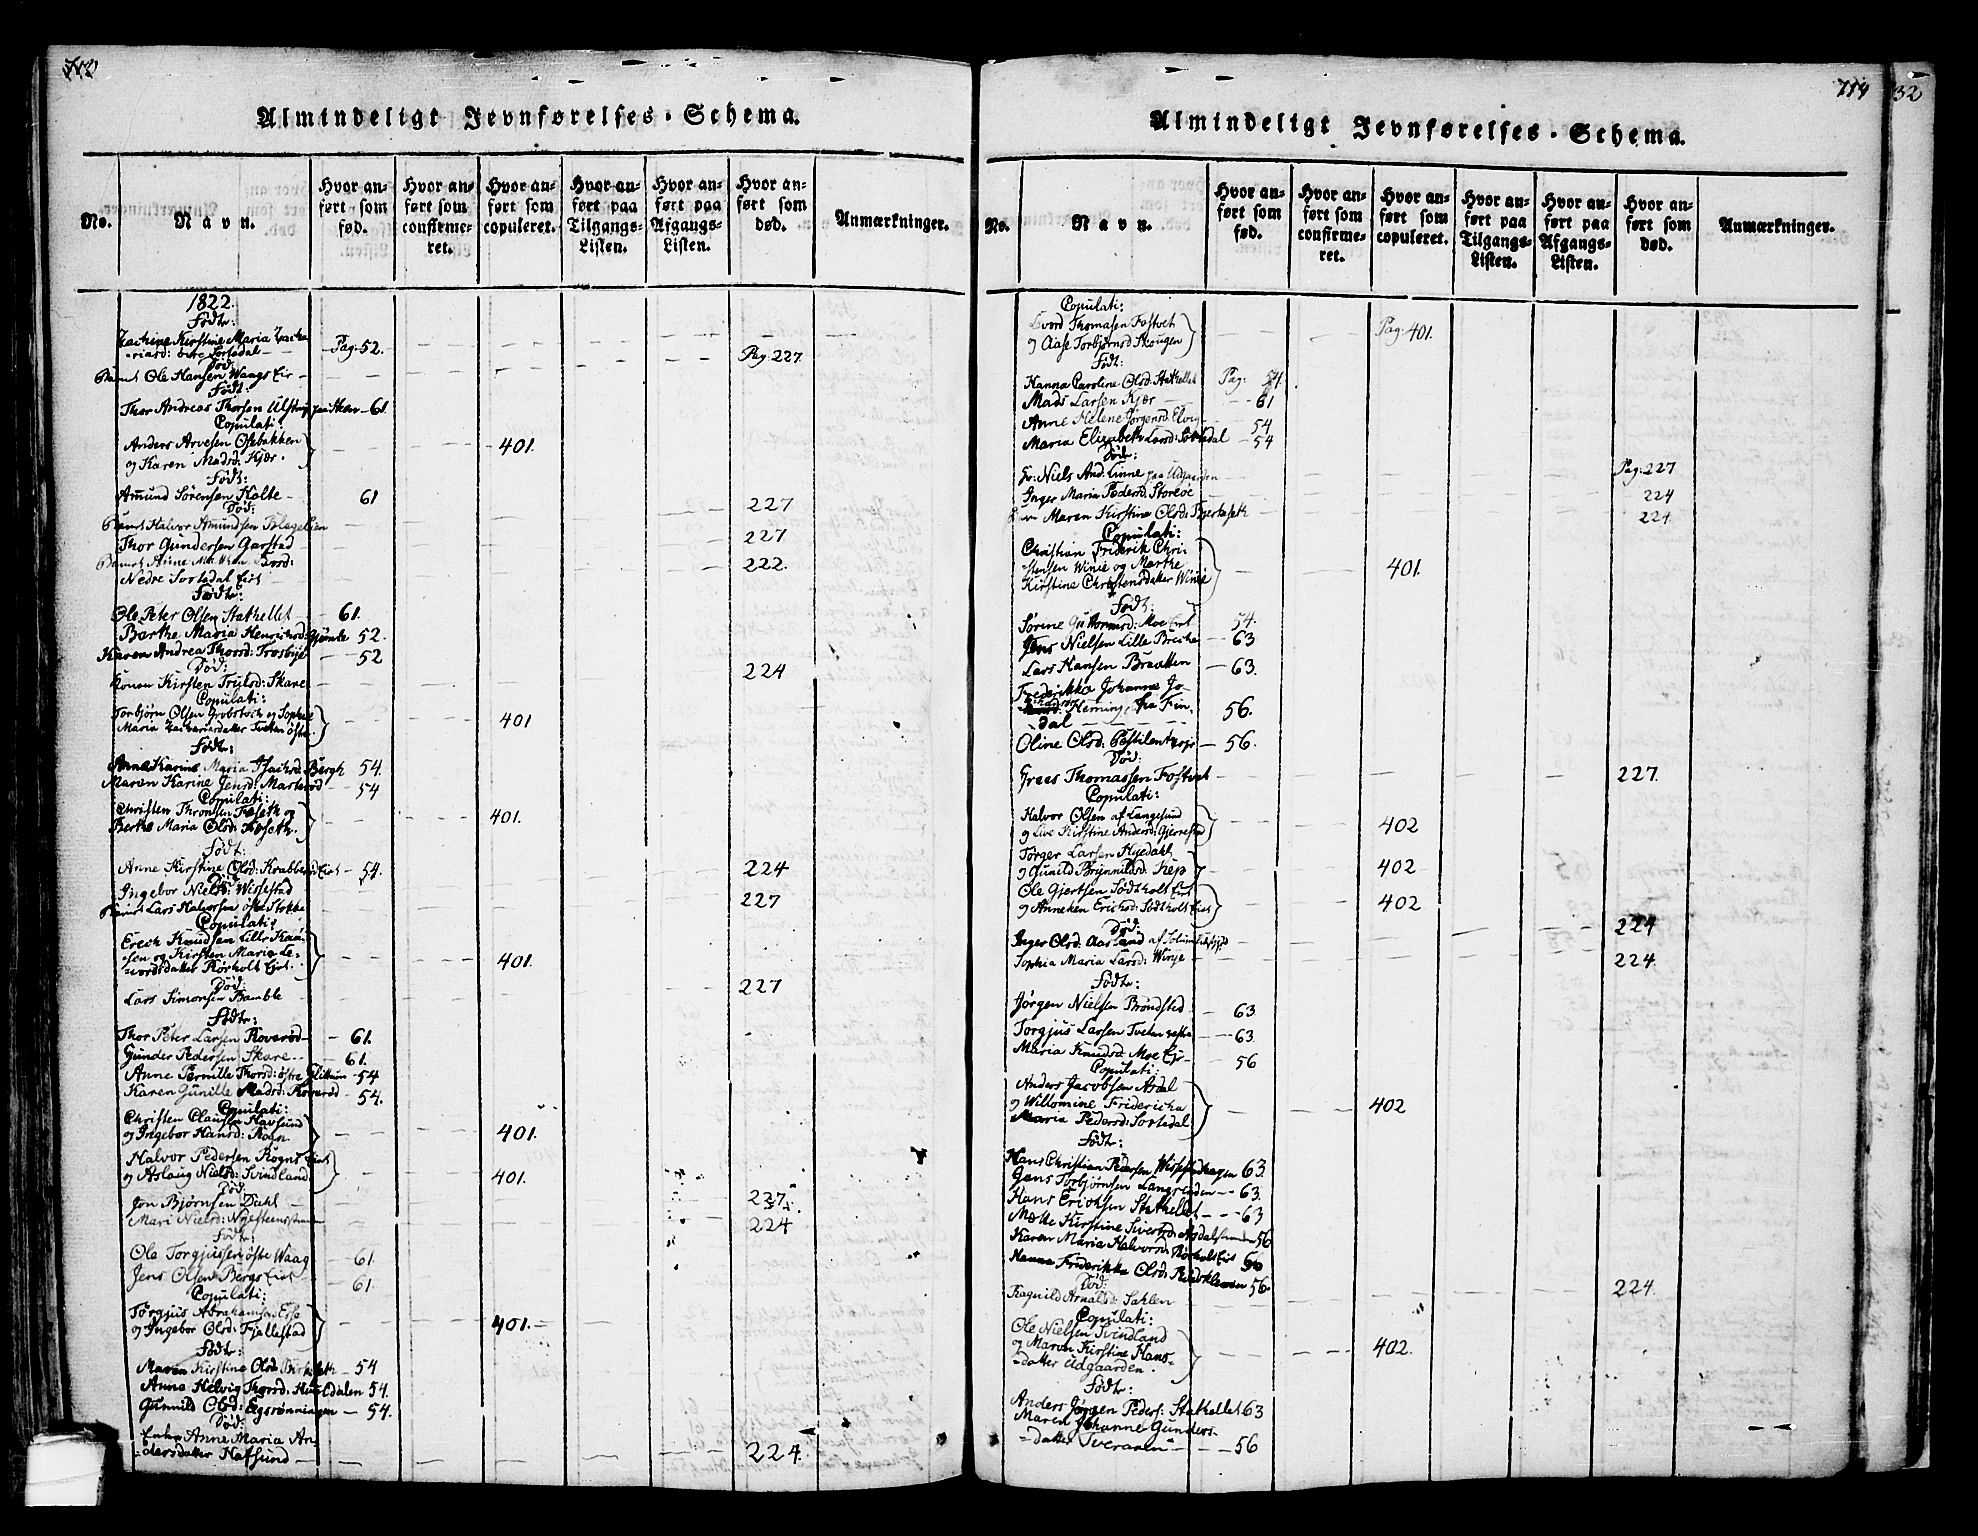 Almindeligt Jevnførelses-Schema.
No.
Navn.
Hvor an-
ført som
fød.
Hvor an-
ført som
confirme-
ret.
Hvor an-
ført som
copuleret.
Hvor an-
ført paa
Tilgangs-
Listen.
Hvor an-
ført paa
Afgangs-
Listen.
Hvor an-
ført som
død.
Anmærkninger.
1822.
Født:
Maria
Pag: 52.
Død:
Ole Hansen Waags Eie Pag. 227.
Født:
Thor Andreas Thorsen 61
Copulati:
Anders Arvesen Osebakken
og Karen Madsd: Kjær. 401.
Født:
Amund Sørensen Holte 61
Død:
Barnet Halvor Amundsen 227
Thor Gundersen Garstad 227
Barnet Anne
Nedre Sortedal Eiet 222.
Født:
Ole Peter Olsen Stathellet 61.
Berthe Maria Henrichsd: 52.
Karen Andrea Thorsd: Trosbye 52
Død:
Konen Kirsten Trulsd: Skare 224
Copulati:
Torbjørn Olsen Grobstock og Sophie
Maria Zachariasdatter Tveten østre. 401
Født:
Anne Karine Maria Isachsd: Bergh 54.
Maren Karine Jensd: 54
Copulati:
Christen Thronsen Foseth og
Berthe Maria Olsd: Foseth. 401.
Født:
Anne Kirstine Olsd: 54.
Død:
Ingebor Nielsd: Wissestad 224
Barnet Lars Halvorsen østre Stokke 227
Copulati:
Erech Knudsen Lille
og Kirsten Maria Le-
vordsdatter Rørholt Eiet. 401.
Død:
Lars Simonsen Bamble 227
Født:
Thor Peter Larsen Roverød 61.
Gunder Pedersen Skare 61.
Anne Pernille Thorsd: østre 54
Karen Gunille Madsd: Roverød 54.
Copulati:
Christen Clausen Havsund
og Ingebor Hansd: 401.
Halvor Pedersen Rogns Eiet
og Aslaug Nielsd: Svindland 401.
Død:
Jon Bjørnsen Dahl 227.
Mari Nielsd: 224
Født:
Ole Torgjussen øfte Waag 61.
Jens Olsen Bergs Eiet 61.
Copulati:
Tørgjus Abrahamsen
og Ingebor Olsd: Fjellestad 401.
Født:
Maren Kirstine Olsd: 54
Anne Helvig Thorsd: 54.
Gunnild Olsd: Egsrønningen 54.
Død:
Enke Anne Maria An-
dersdatter Hafsund 224.
714
32
Almindeligt Jevnførelses-Schema.
No.
Navn.
Hvor an-
ført som
fød.
Hvor an-
ført som
confirme-
ret.
Hvor an-
ført som
copuleret.
Hvor an-
ført paa
Tilgangs-
Listen.
Hvor an-
ført paa
Afgangs-
Listen.
Hvor an-
ført som
død.
Anmærkninger.
Copulati:
Thomasen Fostvet
og Aase Torbjørnsd: Skougen Pag: 401.
Født:
Hanna Caroline Olsd: Stathellet Pag: 54.
Mads Larsen Kjær 61
Anne Helene Jørgensd: 54
Maria Elizabeth Larsd: Sortedal 54
Død:
Niels And: Linne paa Udgaarden Pag: 227
Inger Maria Pedersd: Storeøe 224
Maren Kirstine Olsd: 224
Copulati:
Christian Friderik Chri-
stensen Winie og Marthe
Kirstine Christensdatter Winie 401.
Født:
Sørine Guttormsd: Moe Eiet 54.
Jens Nielsen Lille Brecke 63
Lars Hansen Braatten 63.
Frederikka Johanne Jo-
fra Fin-
dal 56.
Oline Olsd: 56.
Død:
Grees Thomassen Fostvet 227.
Copulati:
Halvor Olsen af Langesund
og Live Kirstine Andersd: Gjerrestad 402
Tørger Larsen
og Gunild Brynnildsd: Kiep 402
Ole Gjertsen Sødtholt Eiet
og Anneken Erichsd: Sødtholt Eiet 402
Død:
Inger Olsd: Aasland af 224
Sophia Maria Larsd: Winje 224.
Født:
Jørgen Nielsen Brondsted 63
Torgjus Larsen Tveten 63.
Maria Knudsd: Moe 56
Copulati:
Anders Jacobsen Asdal
og Willomine Fridericha
Maria Pedersd: Sortedal 402
Født:
Hans Christian Pedersen Wissestadhagen 63.
Torbjørnsen Langrenden 63.
Hans Erichsen Stathellet 63
Mette Kirstine Siverts. 56
Karen Maria Halvorsd: Rørholt Eiet 56
Hanna Friderikka Olsd: 56.
Død:
Ragnild Arnolsd: Sahlen 224.
Copulati:
Ole Nielsen Svindland
og Maren Kirstine Hans-
datter Udgaarden. 402.
Født:
Anders Jørgen Peders: Stathellet 63
Maren Johanne Gunders-
datter Tveraaen 56